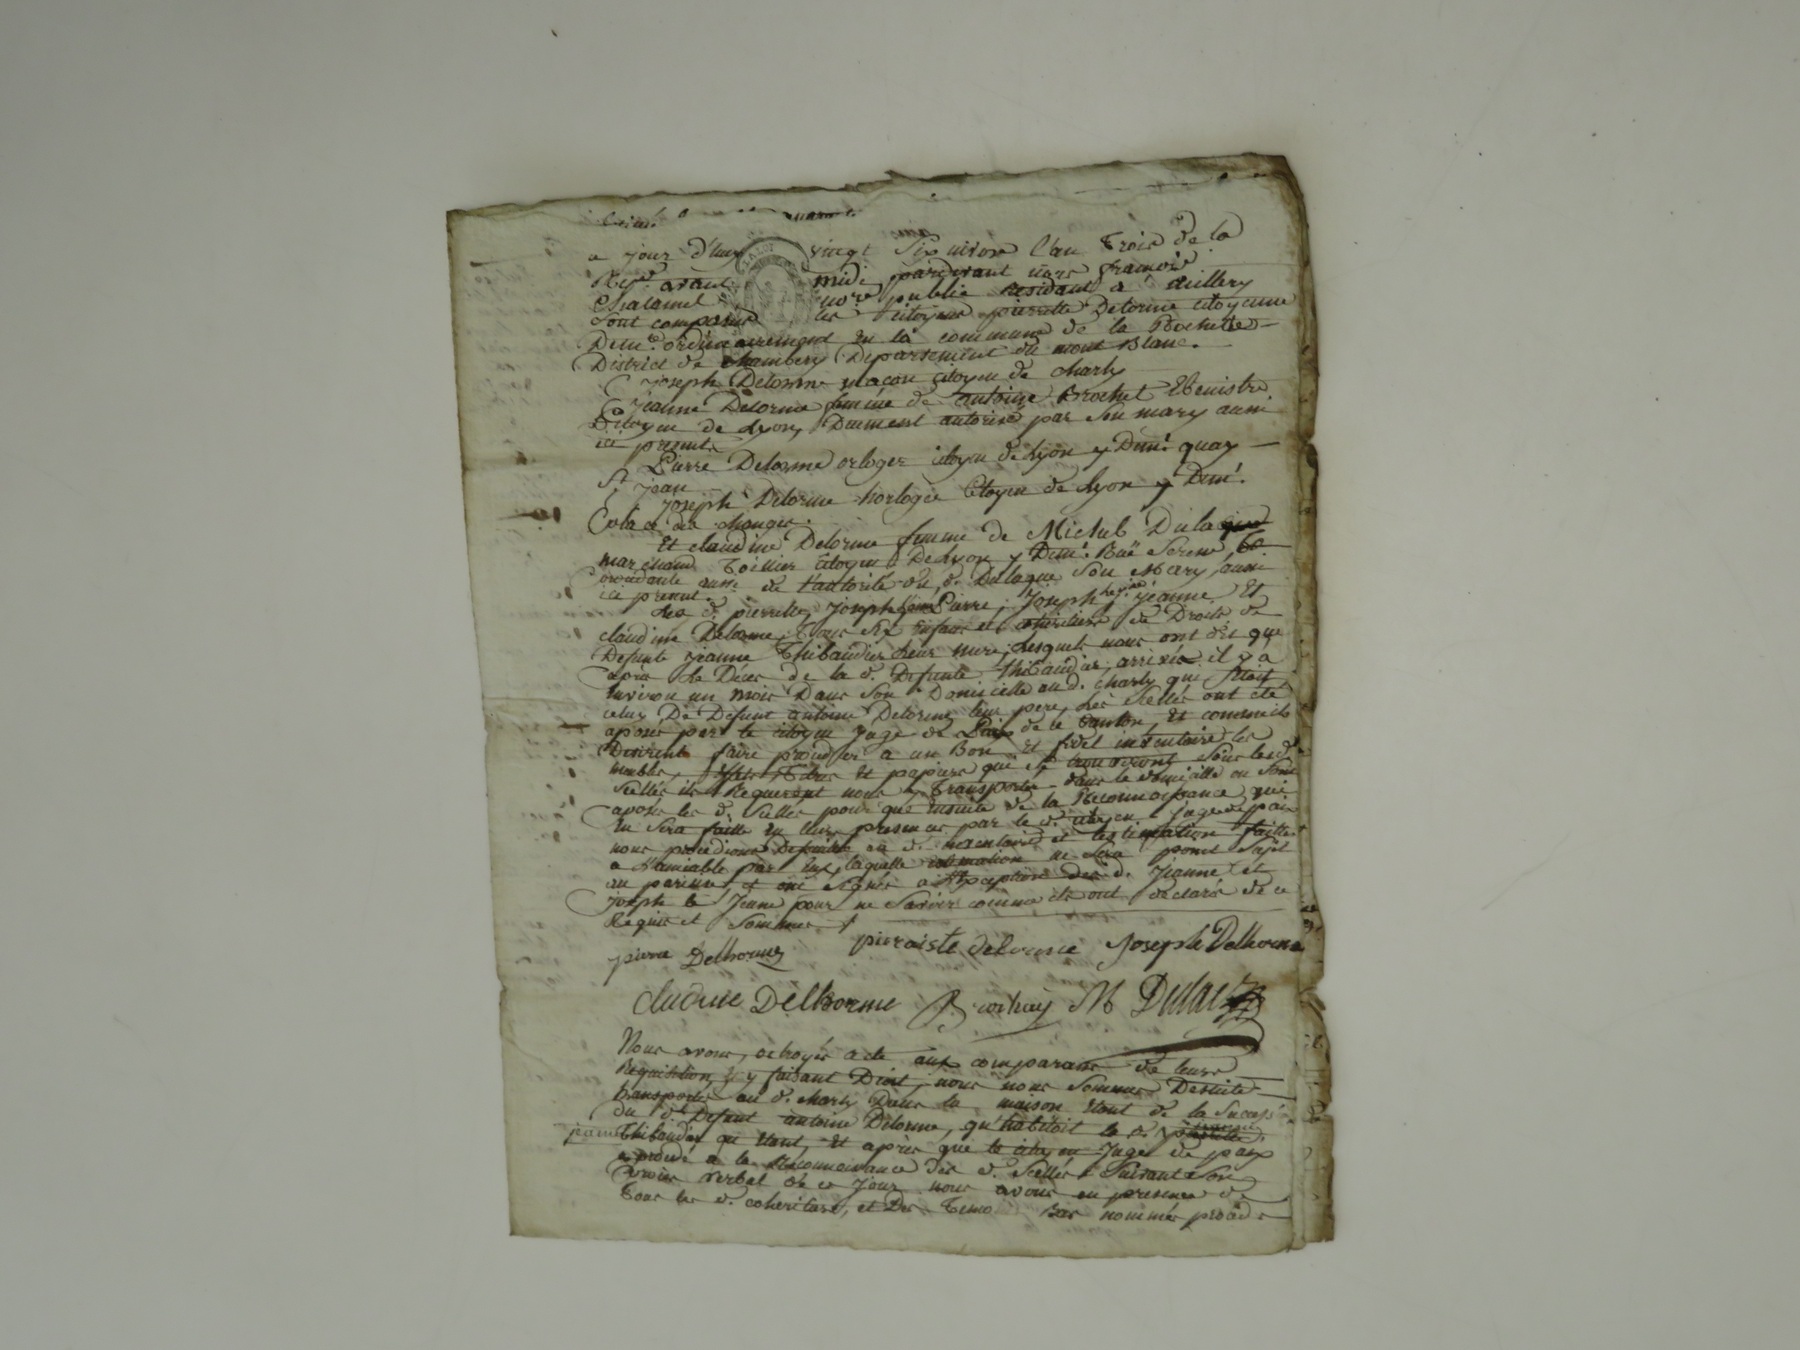 a jour d'huy vingt Six nivose l'an Trois de la
Rep.e avant midi pardevant nous francois
Chalamel no.re public residant a millery
Sont comparus les citoyens pierrette Delorme citoyenne
Dem.e ordinairement en la commune de la Rochette
District de chambery Departement du mont Blanc.
Joseph Delorme macon citoyen de charly
jeanne Delorme femme de antoine Brochet Ebeniste
Citoyen de Lyon, Dument autorisé par Son mary aussi
ici present
Pierre Delorme orloger citoyen de Lyon y Dem.t quay
St jean
Joseph Delorme horloger Citoyen de Lyon y Dem.t
place du change.
Et claudine Delorme femme de Michel
marchand Toillier citoyen De Lyon y Dem.t Ruë Sirene
procedante aussi de l'autorité du d. Son Mary, aussi
ici present.
Les d. pierrette, joseph, Pierre, Joseph le j.ne jeanne Et
claudine Delorme, Tous Six enfans et heritiers de Droits de
Defunte jeanne Thibaudier leur mere, Lesquels nous ont dit que
après Le Déces de la d. Defunte Thibaudier, arrivée il y a
Environ un mois Dans Son Domicille au d. charly qui Etoit
celuy De Defunt antoine Delorme leur pere, Les Scellés ont été
aposés par le citoyen juge de Paix de ce Canton, Et comme ils
Desirent faire proceder a un Bon Et fidel inventaire des
meubles, Effets Titres Et papiers qui Se trouveront Sous les d.
Scellés ils Requerent nous y Transporter dans le Domicille ou Sont
aposés les d. Scellés pour que Ensuite de la Reconnoissance qui
En Sera faitte En leurs presences par le d. citoyen juge de paix
nous procedions au d. inventaire et Estimation faitte
a l'amiable par Eux, laquelle estimation ne Sera point Sujet
au parisis, et ont Signés a l'Exception des d. jeanne et
joseph le jeune pour ne Savoir comme ils ont declaré de ce
Requis et Sommés
pierre Delhorme pieraiste delorme Joseph Delhorme
claudine Delhorme M
Nous avons, octroyés acte aux comparans de leurs
Requisition, Et y faisant Droit, nous nous Sommes Desuite
transportés au d. charly Dans la maison Etant de la Succession
du d. Defunt antoine Delorme, qu'habitoit la d.
jeanne Thibaudier Et après que le citoyen Juge de paix
a procedé a la Reconnoissance des d. Scellés Suivant Son
Procès Verbal de ce jour nous avons en presence de
Tous les d. coheritiers, et Des Temoins Bas nommés procédé